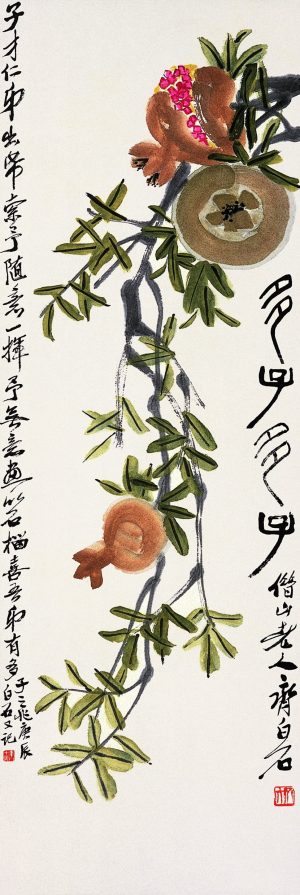 多子多子
借山老人齊白石
子才仁弟出帋索予隨意一揮予無意畫以石榴喜吾弟有多
子之兆庚辰
白石又記